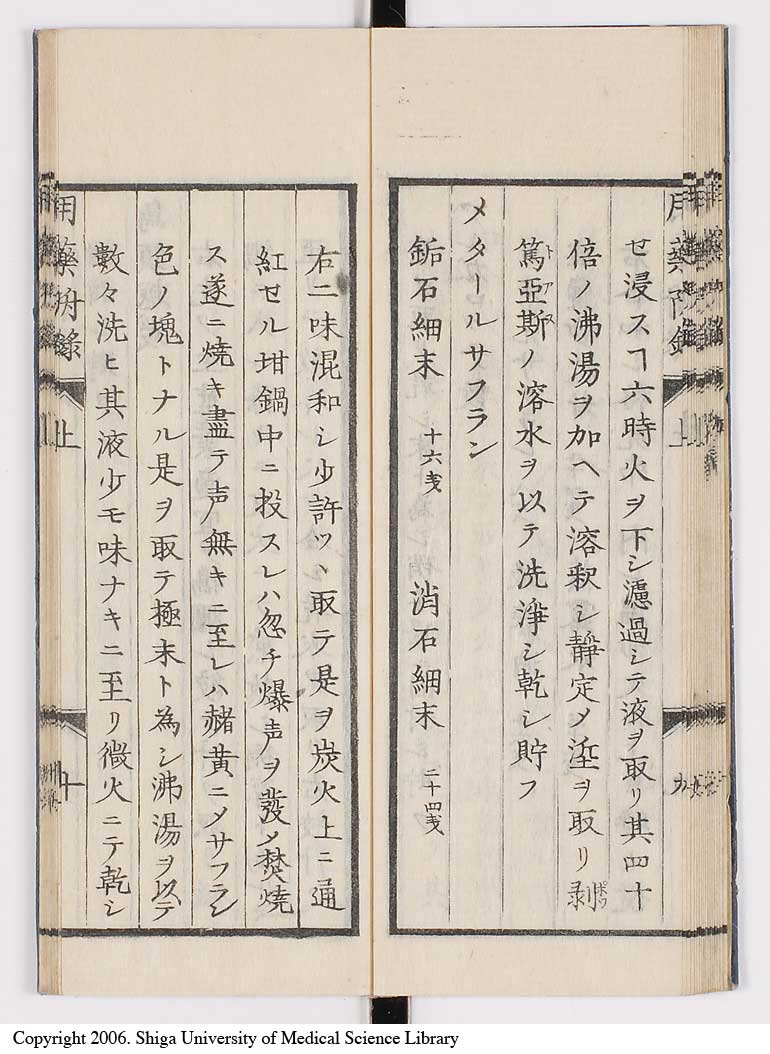 セ浸スヿ六時火ヲ下シ濾過シテ液ヲ取リ其四十
倍ノ沸湯ヲ加ヘテ溶釈シ靜定メ㴃ヲ取リ剥
篤亜斯ノ溶水ヲ以テ洗淨シ乾シ貯フ
トアス
メタールサフラン
鉐石細末 十六戔 消石細末 二十四戔
用藥
上
九
右二味混和シ少許ツヽ取テ是ヲ炭火上ニ通
紅セル坩鍋中ニ投スレハ忽チ爆声ヲ發メ焚燒
ス遂ニ燒キ盡テ声無キニ至レハ赭黄ニメサフラン
色ノ塊トナル是ヲ取テ極末ト為シ沸湯ヲ以テ
數々洗ヒ其液少モ味ナキニ至リ微火ニテ乾シ
用藥
上
十
Copyright 2006. Shiga University of Medical Science Library